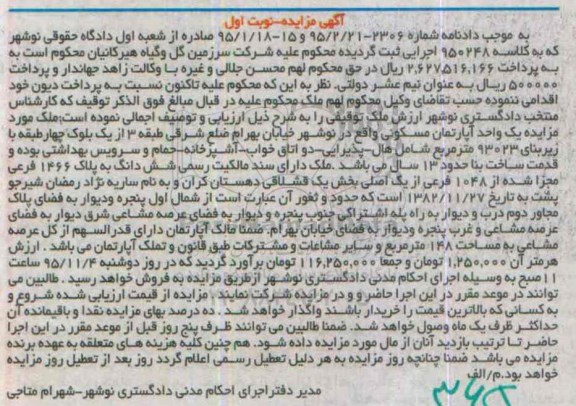 آگهی مزایده-نوبت اول
به موجب دادنامه شماره ۲۳۰۶-۹۵/۲/۲۱ و ۱۵-۹۵/۱/۱۸ صادره از شعبه اول دادگاه حقوقی نوشهر
که به کلاسه ۹۵۰۲۴۸ اجرایی ثبت گردیده محکوم علیه شرکت سرزمین گل وگیاه هیرکانیان محکوم است به
به پرداخت ۲,۶۲۷,۵۱۶,۱۶۶ ریال در حق محکوم لهم محسن جلالی و غیره با وکالت زاهد جهاندار و پرداخت
۵۰۰۰۰۰ ریال به عنوان نیم عشر دولتی. نظر به این که محکوم علیه تاکنون نسبت به پرداخت دیون خود
اقدامی ننموده حسب تقاضای وکیل محکوم لهم ملک محکوم علیه در قبال مبالغ فوق الذکر توقیف که کارشناس
منتخب دادگستری نوشهر ارزش ملک توقیفی را به شرح ذیل ارزیابی و توصیف اجمالی نموده است:ملک مورد
مزایده یک واحد آپارتمان مسکونی واقع در نوشهر خیابان بهرام ضلع شرقی طبقه ۳ از یک بلوک چهارطبقه با
زیربنای ۹۳۰۲۳ مترمربع شامل هال-پذیرایی-دو اتاق خواب-آشپزخانه-حمام و سرویس بهداشتی بوده و
قدمت ساخت بنا حدود ۱۳ سال می باشد. ملک دارای سند مالکیت رسمی شش دانگ به پلاک ۱۴۶۶ فرعی
مجزا شده از ۱۰۴۸ فرعی از یک اصلی بخش یک قشلاقی دهستان کران و به نام ساریه نژاد رمضان شیرجو
پشت به تاریخ ۱۳۸۲/۱۱/۲۷ است که حدود و ثغور آن عبارت است از شمال اول پنجره ودیوار به فضای پلاک
مجاور دوم درب و دیوار به راه پله اشتراکی جنوب پنجره و دیوار به فضای عرصه مشاعی شرق دیوار به فضای
عرصه مشاعی و غرب پنجره ودیوار به فضای خیابان بهرام. ضمنا مالک آپارتمان دارای قدرالسهم از کل عرصه
مشاعی به مساحت ۱۴۸ مترمربع و سایر مشاعات و مشترکات طبق قانون و تملک آپارتمان می باشد . ارزش
هرمتر آن ۱,۲۵۰,۰۰۰ تومان و جمعا ۱۱۶,۲۵۰,۰۰۰ تومان برآورد گردید که در روز دوشنبه ۹۵/۱۱/۴ ساعت
۱۱صبح به وسیله اجرای احکام مدنی دادگستری نوشهر ازطریق مزایده به فروش خواهد رسید . طالبین می
توانند در موعد مقرر در این اجرا حاضر و و در مزایده شرکت نمایند. مزایده از قیمت ارزیابی شده شروع و
به کسانی که بالاترین قیمت را خریدار باشند واگذار خواهد شد . ده درصد بهای مزایده نقدا و باقیمانده آن
حداکثر ظرف یک ماه وصول خواهد شد. ضمنا طالبین می توانند ظرف پنج روز قبل از موعد مقرر در این اجرا
حاضر تا ترتیب بازدید آنان از مال مورد مزایده داده شود. هم چنین کلیه هزینه های متعلقه به عهده برنده
مزایده می باشد ضمنا چنانچه روز مزایده به هر دلیل تعطیل رسمی اعلام گردد روز بعد از تعطیل روز مزایده
خواهد بود.م/الف
مدیر دفتراجرای احکام مدنی دادگستری نوشهر-شهرام متاجی